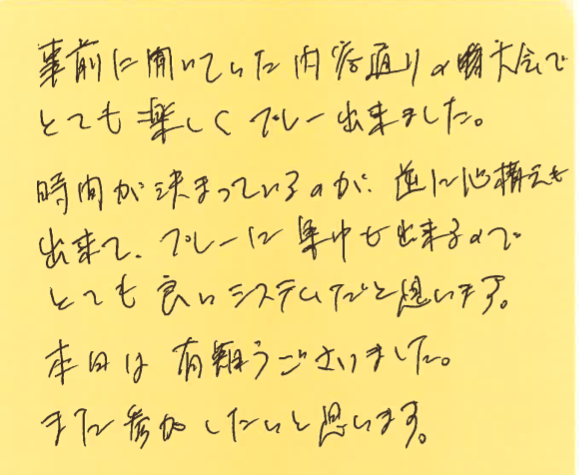 事前に聞いていた内容通りの大会で
とても楽しくプレー出来ました。
時間が決まっているのが、逆に心構えも
出来て、プレーに集中も出来るので
とても良いシステムだと思います。
本日は有難うございました。
また参加したいと思います。